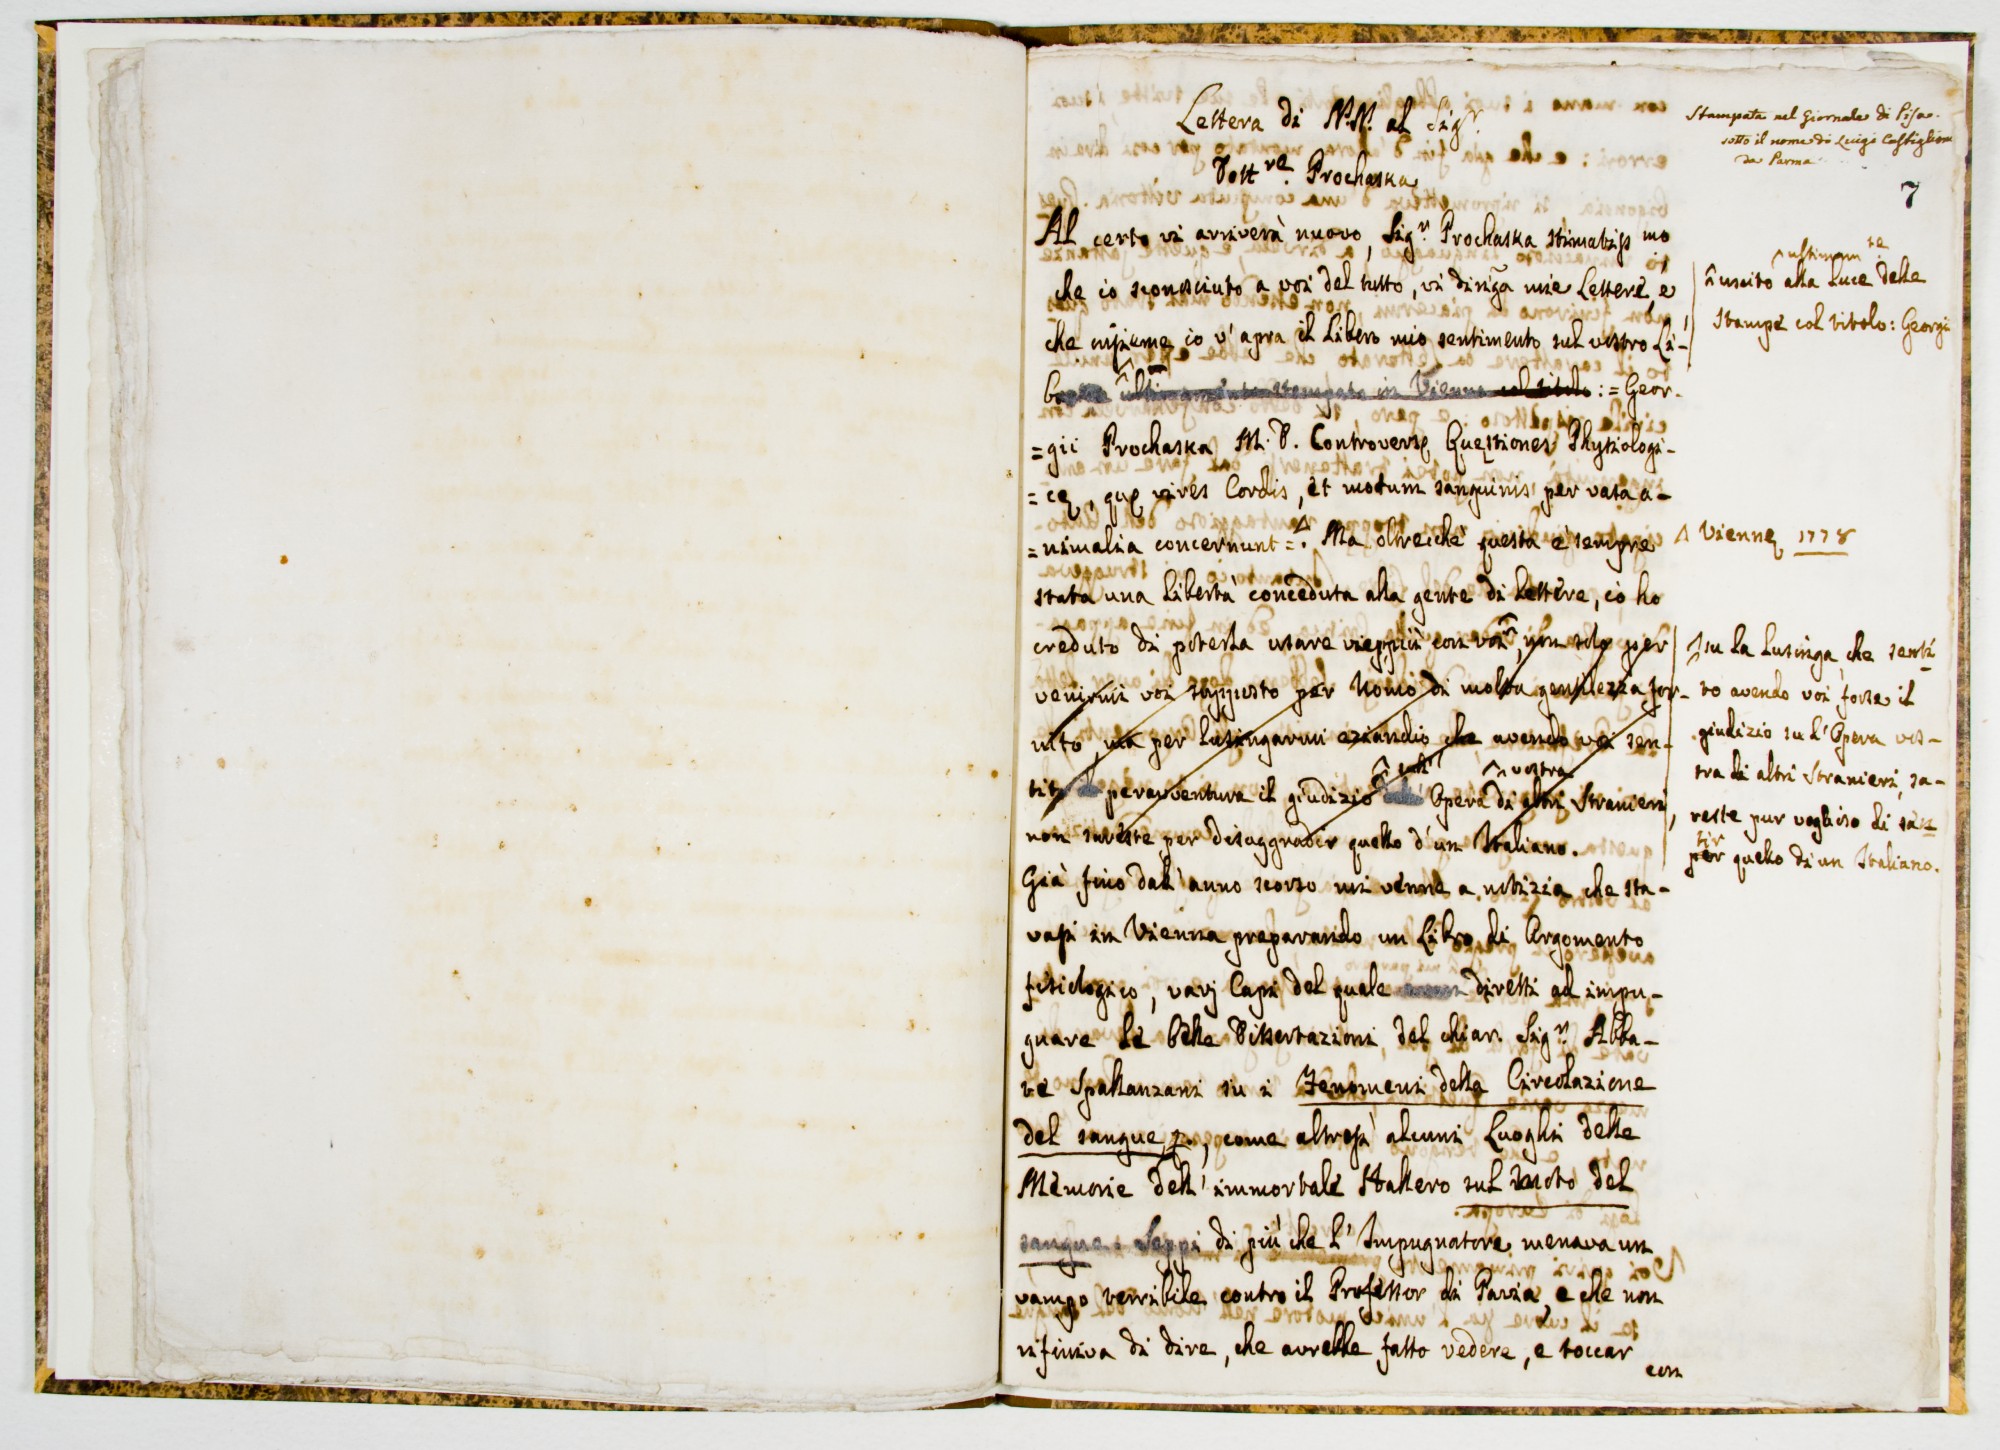 Lettera di N.N. al Sigr.
Dottre. Prochaska
Stampata nel Giornale di Pisa.
sotto il nome di Luigi Castiglioni
da Parma
7
Al certo vi arriverà nuovo, Sigr. Prochaska stimatiss mo
che io sconosciuto a voi del tutto, vi diriga mie Lettere, e
che insieme io v'apra il libero mio sentimento sul vostro Li-
bro ultimamente stampato in Vienna col titolo := Geor-
=gii Prochaska M. D. Controversę Quęstiones Physiologi-
=cę, quę vires Cordis, et motum sanguinis per vasa a-
=nimalia concernunt =. Ma oltreché questa è sempre
stata una libertà conceduta alla gente di Lettere, io ho
creduto di poterla usare vieppiù con voi, non solo per
venirmi voi supposto per Uomo di molta gentilezza for-
nito, ma per lusingarmi eziandio che avendo voi sen-
tito peravventura il giudizio sull' Opera vostra di altri Stranieri,
non sareste per disaggradir quello d'un Italiano.
Già fino dall'anno scorso mi venne a notizia che sta-
vasi in Vienna preparando un Libro di Argomento
fisiologico, varj Capi del quale diretti ad impu-
gnare le belle Dissertazioni del chiar. Sigr. Abba-
te Spallanzani su i Fenomeni della Circolazione
del sangue, come altresì alcuni Luoghi delle
Memorie dell'immortale Hallero sul moto del
sangue: Seppi di più che l'Impugnatore menava un
vampo terribile contro il Professor di Pavia, e che non
rifiniva di dire, che avrebbe fatto vedere, e toccar
con
ultimamte.
uscito alla Luce delle
stampe col titolo: Georgii
Δ Viennę 1778
su la Lusinga, che senti
to avendo voi forse il
giudizio su l'Opera vos-
tra di altri Stranieri, sa-
reste pur voglioso di sen
tir quello di un Italiano.